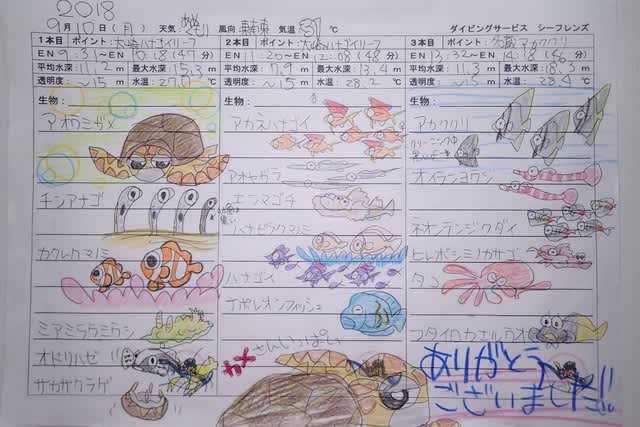 2018
9月10日(月) 天気 風向 東南東 気温 31℃ ダイビングサービス シーフレンズ
1本目 ポイント:大崎ハナゴイリーフ
EN 9:31〜10:18(47分)
平均水深:11.2m 最大水深:15.3m
透明度:〜15m 水温:27.
生物:
アオウミガメ
チンアナゴ
カクレクマノミ
ミアミラウミウシ
オドリハゼ
サカサクラゲ
2本目 ポイント:大崎ハナゴイリーフ
EN
平均水深:7.9m 最大水深:13.4m
透明度:〜15m 水温:28.2℃
生物:
アカネハナゴイ
アオヤガラ
エラブゴチ
ハナビラクマノミ
ハナゴイ
ナポレオンフィッシュ
カメ さんいっぱい
3本目 ポイント: アカククリ
EN 13:32〜14:18
平均水深:11.3m 最大水深:18.
透明度:〜15m 水温:28.4℃
生物:
アカククリ
クリーニング中
オイランヨウジ
ネオンテンジクダイ
ヒレボシミノカサゴ
タコ
フタイロカエルウオ
ありがとう
ございました!!